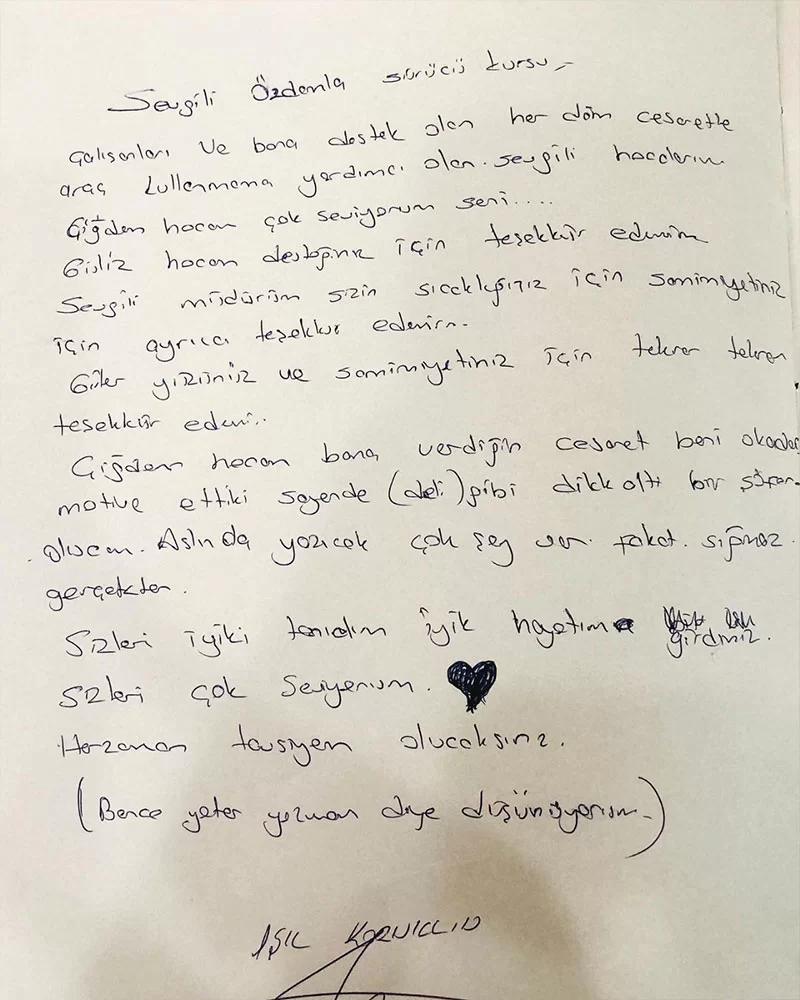 Sevgili Özdemla sürücü kursu,
çalışanları ve bana destek olan her daim cesaretle
araç kullanmama yardımcı olan. sevgili hocalarım
Çiğdem hocam çok seviyorum seni....
hocam desteğiniz için teşekkür ederim
Sevgili müdürüm sizin sıcaklığınız için samimiyetiniz
için ayrıca teşekkür ederim.
Güler yüzünüz ve samimiyetiniz için tekrar tekrar
teşekkür ederi..
Çiğdem hocam bana verdiğin cesaret beni okadar
motive ettiki sayende (deli) gibi dikkatli bir şöför.
olucam. Aslında yazıcak çok şey var. fakat. sığmaz.
gerçekten.
Sizleri iyiki tanıdım iyik hayatıma girdiniz.
Sizleri çok Seviyorum.
Herzaman tavsiyem olucaksınız.
(Bence yeter yazmam diye düşünüyorum.)
IŞIL